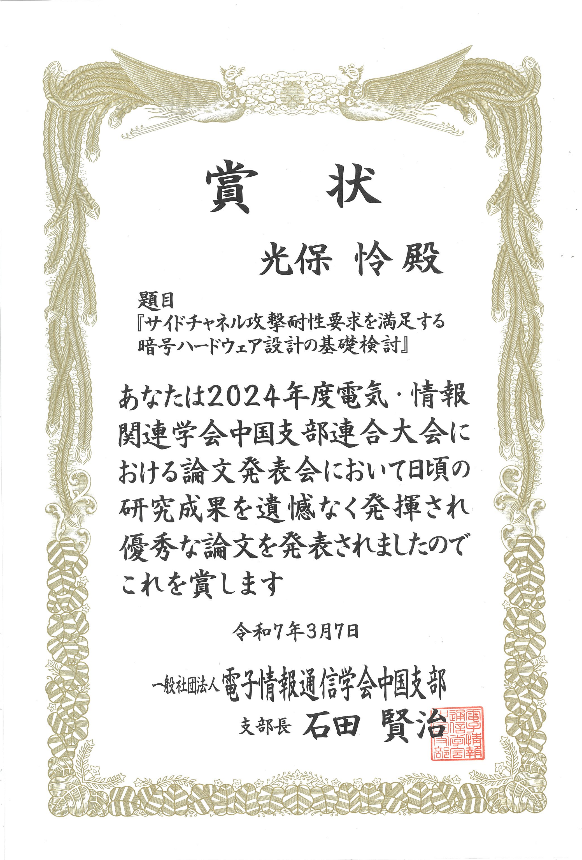 賞 状
光保 怜 殿
題目
『サイドチャネル攻撃耐性要求を満足する
暗号ハードウェア設計の基礎検討』
あなたは2024年度電気・情報
関連学会中国支部連合大会に
おける論文発表会において日頃の
研究成果を遺憾なく発揮され
優秀な論文を発表されましたので
これを賞します
令和7年3月7日
一般社団法人 電子情報通信学会中国支部
支部長 石田 賢治